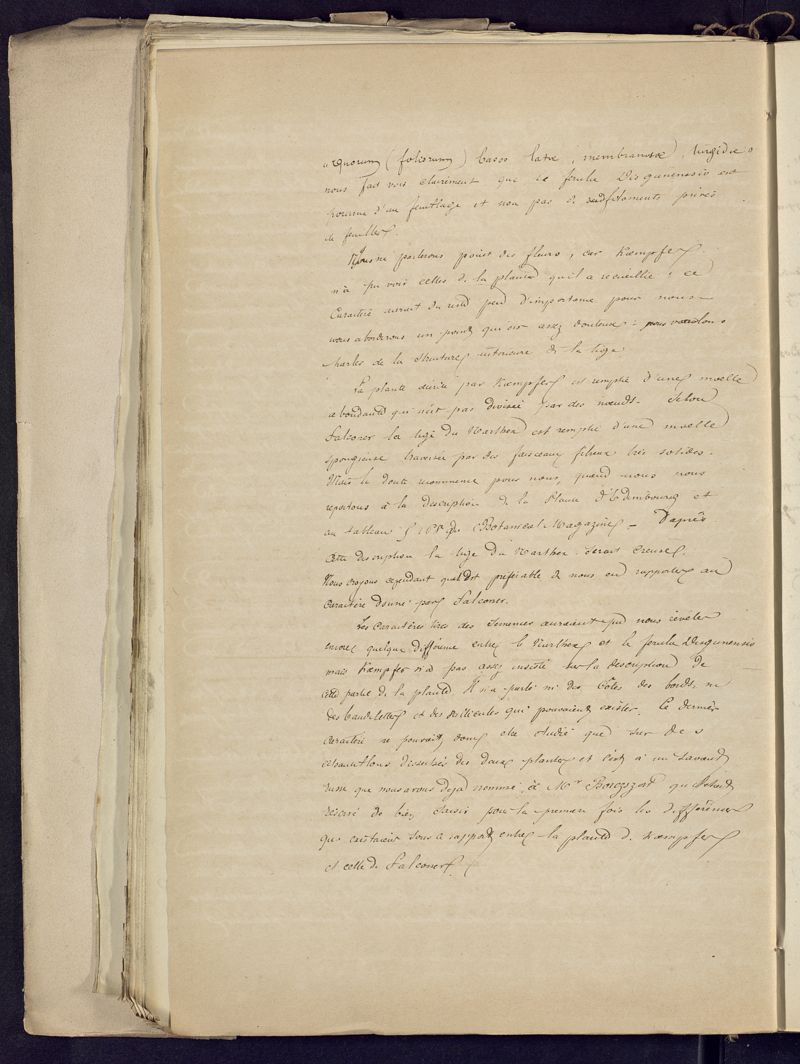 « Quorum (foliorum) bases latæ, membranosæ, turgidæ »
nous fait voir clairement que le ferula Disgunensis est
pourvue d'un feuillage et non pas de rudiments privés
de feuilles.
Nous ne parlerons point des fleurs, car Kœmpfer
n'a pu voir celles de la plante qu'il a recueillie; ce
caractère aurait du reste peu d'importance pour nous
nous aborderons un point qui est assez douteux: nous voulons
parler de la structure intérieure de la tige
La plante décrite par Kœmpfer est remplie d'une moelle
abondante qui n'est pas divisée par des nœuds. Selon
Falconer la tige du Narthex est remplie d'une moelle
spongieuse traversée par des faisceaux fibreux très solides.
Mais le doute recommence pour nous, quand nous nous
reportons à la description de la Plante d'Edimbourg et
au tableau 5168 du Botanical-Magazine — D'après
cette description la tige du Narthex serait creuse.
Nous croyons cependant qu'il est préférable de nous en rapporter au
caractère donné par Falconer.
Les caractères tirés des semences auraient pu nous révéler
encore quelque différence entre le Narthex et le ferula Disgunensis
mais Kœmpfer n'a pas assez insisté sur la description de
cette partie de la plante. Il n'a parlé ni des côtes des bords, ni
des bandelettes et des vallécules qui pouvaient exister. Ce dernier
caractère ne pouvait, donc être étudié que sur des
échantillons desséchés des deux plantes et c'est à un savant
russe que nous avons déjà nommé, à Mr Borszczow qu'était
réservé de bien saisir pour la première fois les différences
qui existaient sous ce rapport entre la plante de Kœmpfer
et celle de Falconer.